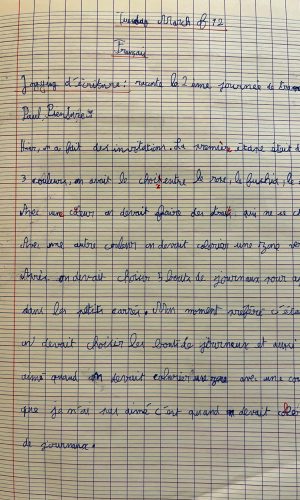 Tuesday March 12
Français
Jogging d'écriture : raconte la 2 ème journée de
Paul,
Hier, on a fait des invitations. La première étape était d
3 couleurs, on avait le choix entre le rose, le fuchsia, le
Avec un cœur on devait faire des traits qui ne
Avec une autre couleur on devait colorier une zone
Après on devait choisir 5 bouts de journaux pour
dans les petits carrés. Mon moment préféré c'éta
on devait choisir les bouts de journeux et aussi
aimé quand on devait colorier une zone avec une co
que je n'ai pas aimé c'est quand on devait
de journaux.